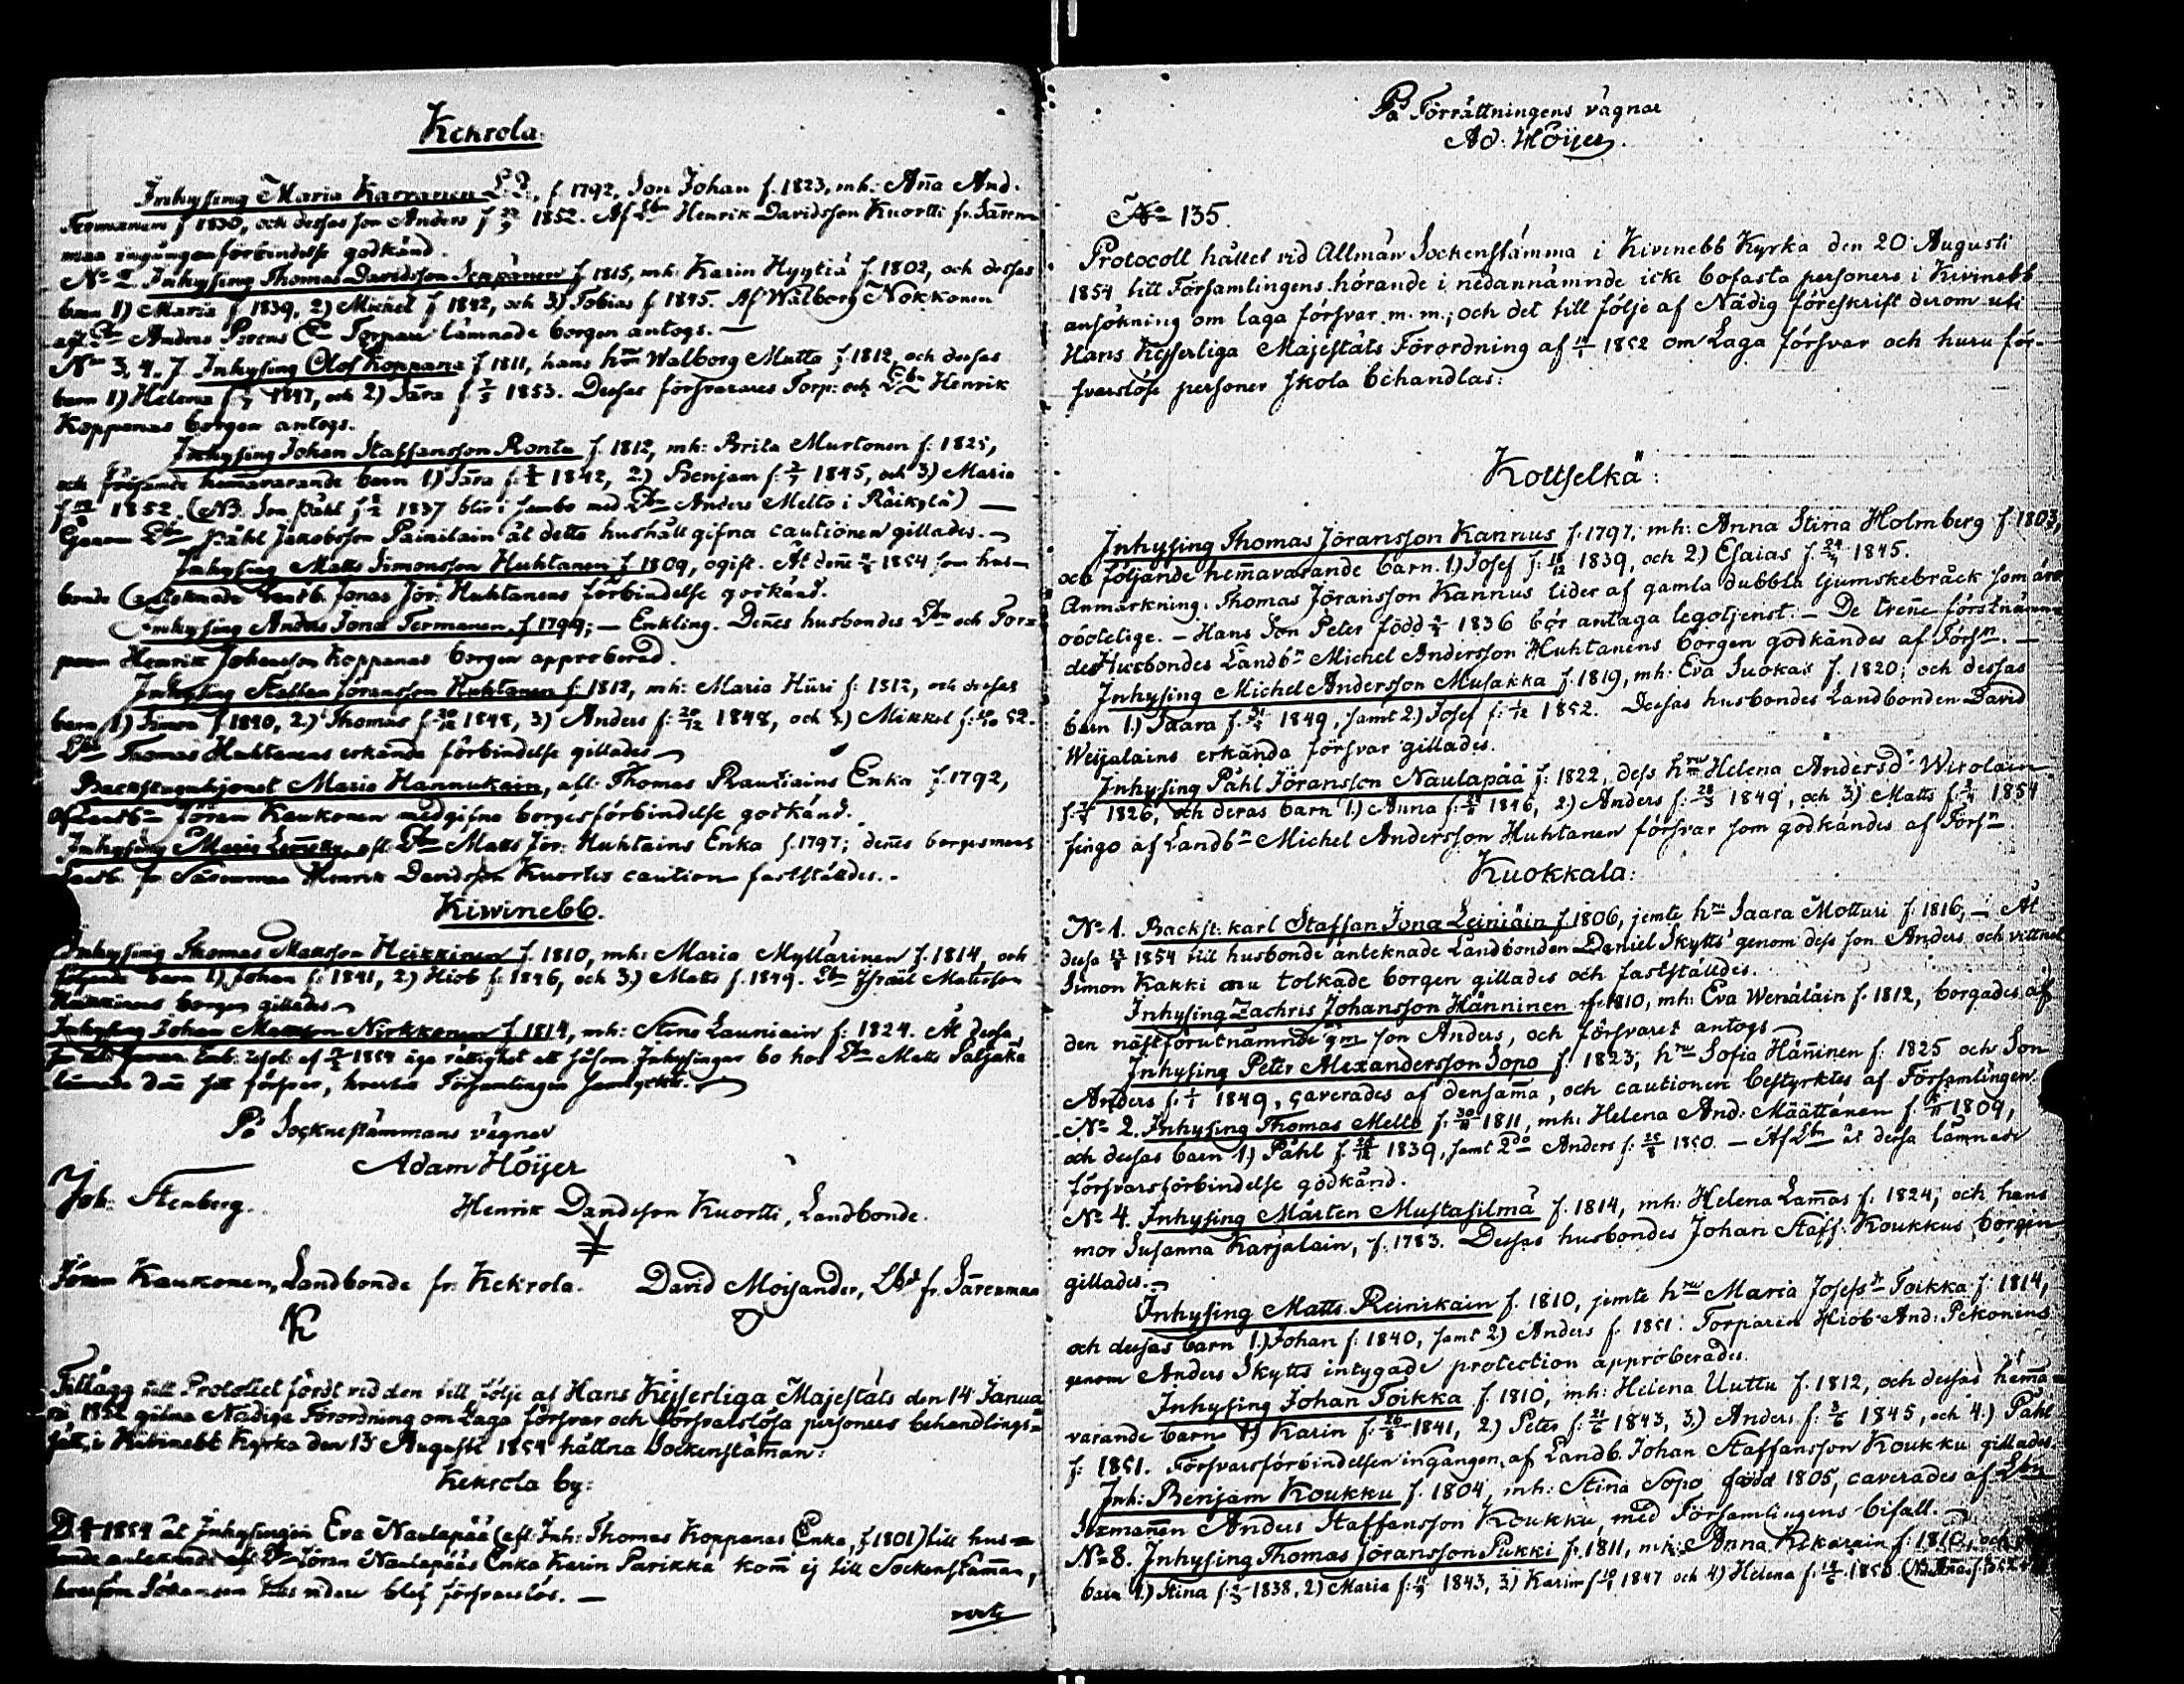 Kekrola.
Inhysing Maria Karranen E.?., f 1792, Son Johan f. 1823, mh: Anna And.
f 1830, och dessas son Anders f 1852. Af Lbn Henrik Davidsson Kuortti fr. Sären-
maa ingångna förbindelse godkänd.
No 2. Inhysing Thomas Davidsson Seppänen f. 1815, mh: Karin Hyytiä f. 1802, och dessas
barn 1) Maria f 1839, 2) Mickel f 1842, och 3) Tobias f 1845. Af Walborg Nokkonen
Anders Torpare lämnade borgen antogs. —
No 3. 4. 7. Inhysing Olof Koppana f 1811, hans hru Walborg Mutta f 1812, och dessas
barn 1) Helena f 1847, och 2) Sara f. 1853. Dessas försvarares Torp: och Lbn Henrik
Koppanas borgen antogs.
Inhysing Johan Staffansson Rontu f. 1812, mh: Brita Murtonen f: 1825,
och följande hemmavarande barn 1) Sara f: 1842, 2) Benjam f: 1845, och 3) Maria
f 1852. (NB. Son Påhl f 1837 blir i sambo med Lbn Anders Melto i Räikylä) —
Genom Lbn Påhl Jakobsson Painilain åt detta hushåll gifna cautionen gillades.
Inhysing Matts Simonsson Huhtanen f 1809, ogift. Åt denne 1854 som hus-
bonde antecknade Landb. Jonas Jör: Huhtanens förbindelse godkänd.
Inhysing Anders Jona Termanen f 1799; — Enkling. Dennes husbondes Lbn och Tor-
paren Henrik Johansson Koppanas borgen approberad.
Inhysing Staffan Jöransson Huhtanen f: 1812, mh: Maria Hüri f: 1812, och dessas
barn 1) Simon f 1840, 2) Thomas f: 20/12 1848, 3) Anders f: 20/12 1848, och 4) Mikkel f: 52.
Lbn Thomas Huhtanens erkända förbindelse gillades
Backstuguhjonet Maria Hannukain, afl: Thomas Rautiains Enka f. 1792,
af Landbn Jöran Kaukonen medgifna borgesförbindelse godkänd.
Inhysing Maria afl: Lbn Matts Jör: Huhtains Enka f. 1797; dennes borgesmans
Landb. fr Särenmaa Henrik Davidsson Kuortis caution fastställdes. -
Kiwinebb.
Inhysing Thomas Mattsson Heikkinen f. 1810, mh: Maria Myllärinen f. 1814, och
följande barn 1) Johan f: 1841, 2) Hiob f: 1846, och 3) Matts f. 1849. Lbn Israël Mattsson
Heikkinens borgen gillades
Inhysing Johan Mattsson Nirkkonen f 1814, mh: Stina Launiain f: 1824. Åt dessa,
af 1854 äga rättighet att såsom Inhysingar bo hos Lbn Matts Paljakä
lämnade denne sitt försvar, hvartill Församlingen samtyckte.
På Sockenstämmans vägnar
Adam Höijer
Joh: Stenberg.
Henrik Davidsson Kuortti, Landbonde.
Jöran Kaukonen, Landbonde fr. Kekrola. David Moijander, Lbd fr. Särenmaa
K
Tillägg till Protollet fördt vid den till följe af Hans Kejserliga Majestäts den 14 Janua-
ri 1852 gifna Nådiga Förordning om Laga försvar och försvarslösa personers behandlings-
sätt, i Kivinebb Kyrka den 13 Augusti 1854 hållna Sockenstämman:
Kekrola by:
D. 1854 åt Inhysingen Eva Naulapää (afl: Inh: Thomas Koppanas Enka, f 1801) till hus-
bonde antecknade afl: Lbn Jöran Naulapääs Enka Karin Parikka kom ej till Sockenstämman,
hvarföre Sökanden blef försvarslös. —
verte
På Förrättningens vägnar
Ad: Höijer.
No 135.
Protocoll hållet vid Allmän Sockenstämma i Kivinebb Kyrka den 20 Augusti
1854 till Församlingens hörande i nedannämnde icke bofasta personers i Kivinebb
ansökning om laga försvar m. m.; och det till följe af Nådig föreskrift derom uti
Hans Kejserliga Majestäts Förordning af 14/1 1852 om Laga försvar och huru för-
svarslöse personer skola behandlas:
Kottselkä:
Inhysing Thomas Jöransson Kannus f. 1797, mh: Anna Stina Holmberg f. 1803,
och följande hemmavarande barn. 1.) Josef f: 1839, och 2.) Esaias f. 1845.
Anmärkning. Thomas Jöransson Kannus lider af gamla dubbla ljumskebråck som äro
obotelige. - Hans Son Peter född 1836 bör antaga legotjenst. - De trenne förstnämn-
des Husbondes Landbn Michel Andersson Huhtanens borgen godkändes af Försn. -
Inhysing Michel Andersson Musakka f. 1819, mh: Eva Suokas f. 1820; och dessas
barn 1.) Saara f. 1849, samt 2.) Josef f: 1852. Dessas husbondes Landbonden David
Weijalains erkända försvar gillades.
Inhysing Påhl Jöransson Naulapää f: 1822, dess hru Helena Andersdr Wirolain
f: 1826, och deras barn 1.) Anna f: 1846, 2) Anders f: 1849, och 3) Matts f: 1854
fingo af Landbn Michel Andersson Huhtanen försvar som godkändes af Försn.
Kuokkala:
No 1. Backst: karl Staffan Jona Leiniäin f. 1806, jemte hru Saara Motturi f: 1816, — Åt
dessa 1854 till husbonde antecknade Landbonden Daniel Skytts genom dess son Anders och vittnet
Simon Kakki nu tolkade borgen gillades och fastställdes.
Inhysing Zachris Johansson Hänninen f: 1810, mh: Eva Wenäläin f. 1812, borgades af
den nästförutnämnde gm son Anders, och försvaret antogs
Inhysing Peter Alexandersson Sopo f: 1823, hru Sofia Hänninen f: 1825 och Son
Anders f: 1849, caverades af densamma, och cautionen bestyrktes af Församlingen.
No 2. Inhysing Thomas Melto f: 1811, mh: Helena And: Määttänen f. 1809,
och dessas barn 1.) Påhl f. 1839, samt 2do Anders f: 1850. — Af Lbn åt dessa lämnade
försvarsförbindelse godkänd.
No 4. Inhysing Mårten Mustasilmä f. 1814, mh: Helena Lammas f. 1824, och hans
mor Susanna Karjalain, f. 1783. Dessas husbondes Johan Staff: Koukkus borgen
gillades.
Inhysing Matts Reinikain f. 1810, jemte hru Maria Josefsdr Toikka f: 1814,
och dessas barn 1.) Johan f: 1840, samt 2) Anders f. 1851. Torparen Hiob And: Pekonens
genom Anders Skytts intygade protection approberades.
Inhysing Johan Toikka f. 1810, mh: Helena Uuttu f. 1812, och dessas hemma-
varande barn 1) Karin f: 1841, 2.) Peter f: 1843, 3.) Anders f: 1845, och 4.) Påhl
f: 1851. Försvarsförbindelsen ingången af Landb. Johan Staffansson Koukku gillades.
Inh: Benjam Koukku f. 1804, mh: Stina Sopo född 1805, caverades af Lbn
Anders Staffansson Koukku, med Församlingens bifall.
No 8. Inhysing Thomas Jöransson Pukki f. 1811, mh: Anna Kekarain f: och
barn 1.) Stina f: 1838, 2) Maria f: 1843, 3) Karin f 1847 och 4) Helena f: